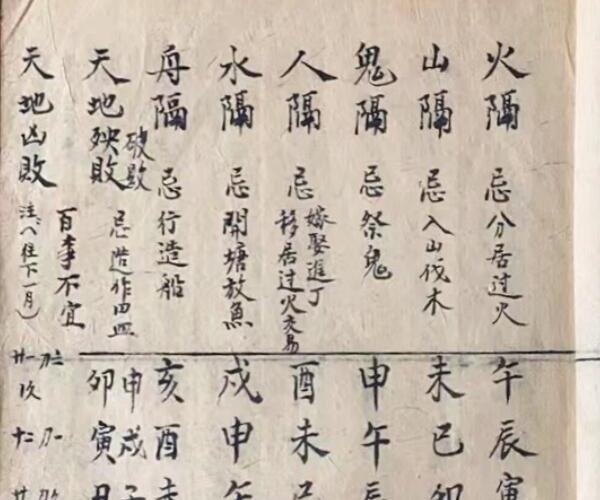 火隔 忌分居过火 午辰寅
山隔 忌入山伐木 未巳卯
鬼隔 忌祭鬼 申午辰
人隔 忌
嫁娶進丁
移居过火交易
酉未
水隔 忌開塘放魚 戌申午
舟隔 忌行造船 亥酉未
天地殃敗
忌造作
申戌子
卯寅丑
天地凶敗
百事不宜
往下一月